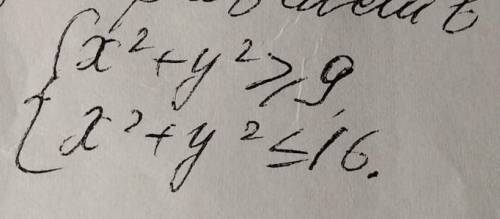 {x²+y²≥9,
x²+y²≤16.